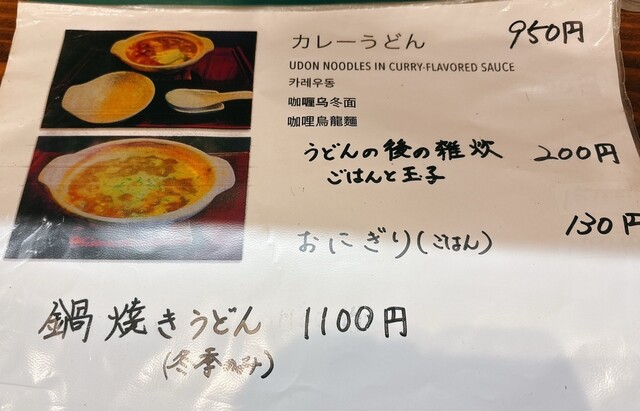 カレーうどん 950円
UDON NOODLES IN CURRY-FLAVORED SAUCE
카레우동
咖喱乌冬面
咖哩烏龍麵
うどんの後の雑炊 200円
ごはんと玉子
130円
おにぎり(ごはん)
鍋焼きうどん 1100円
(冬季のみ)